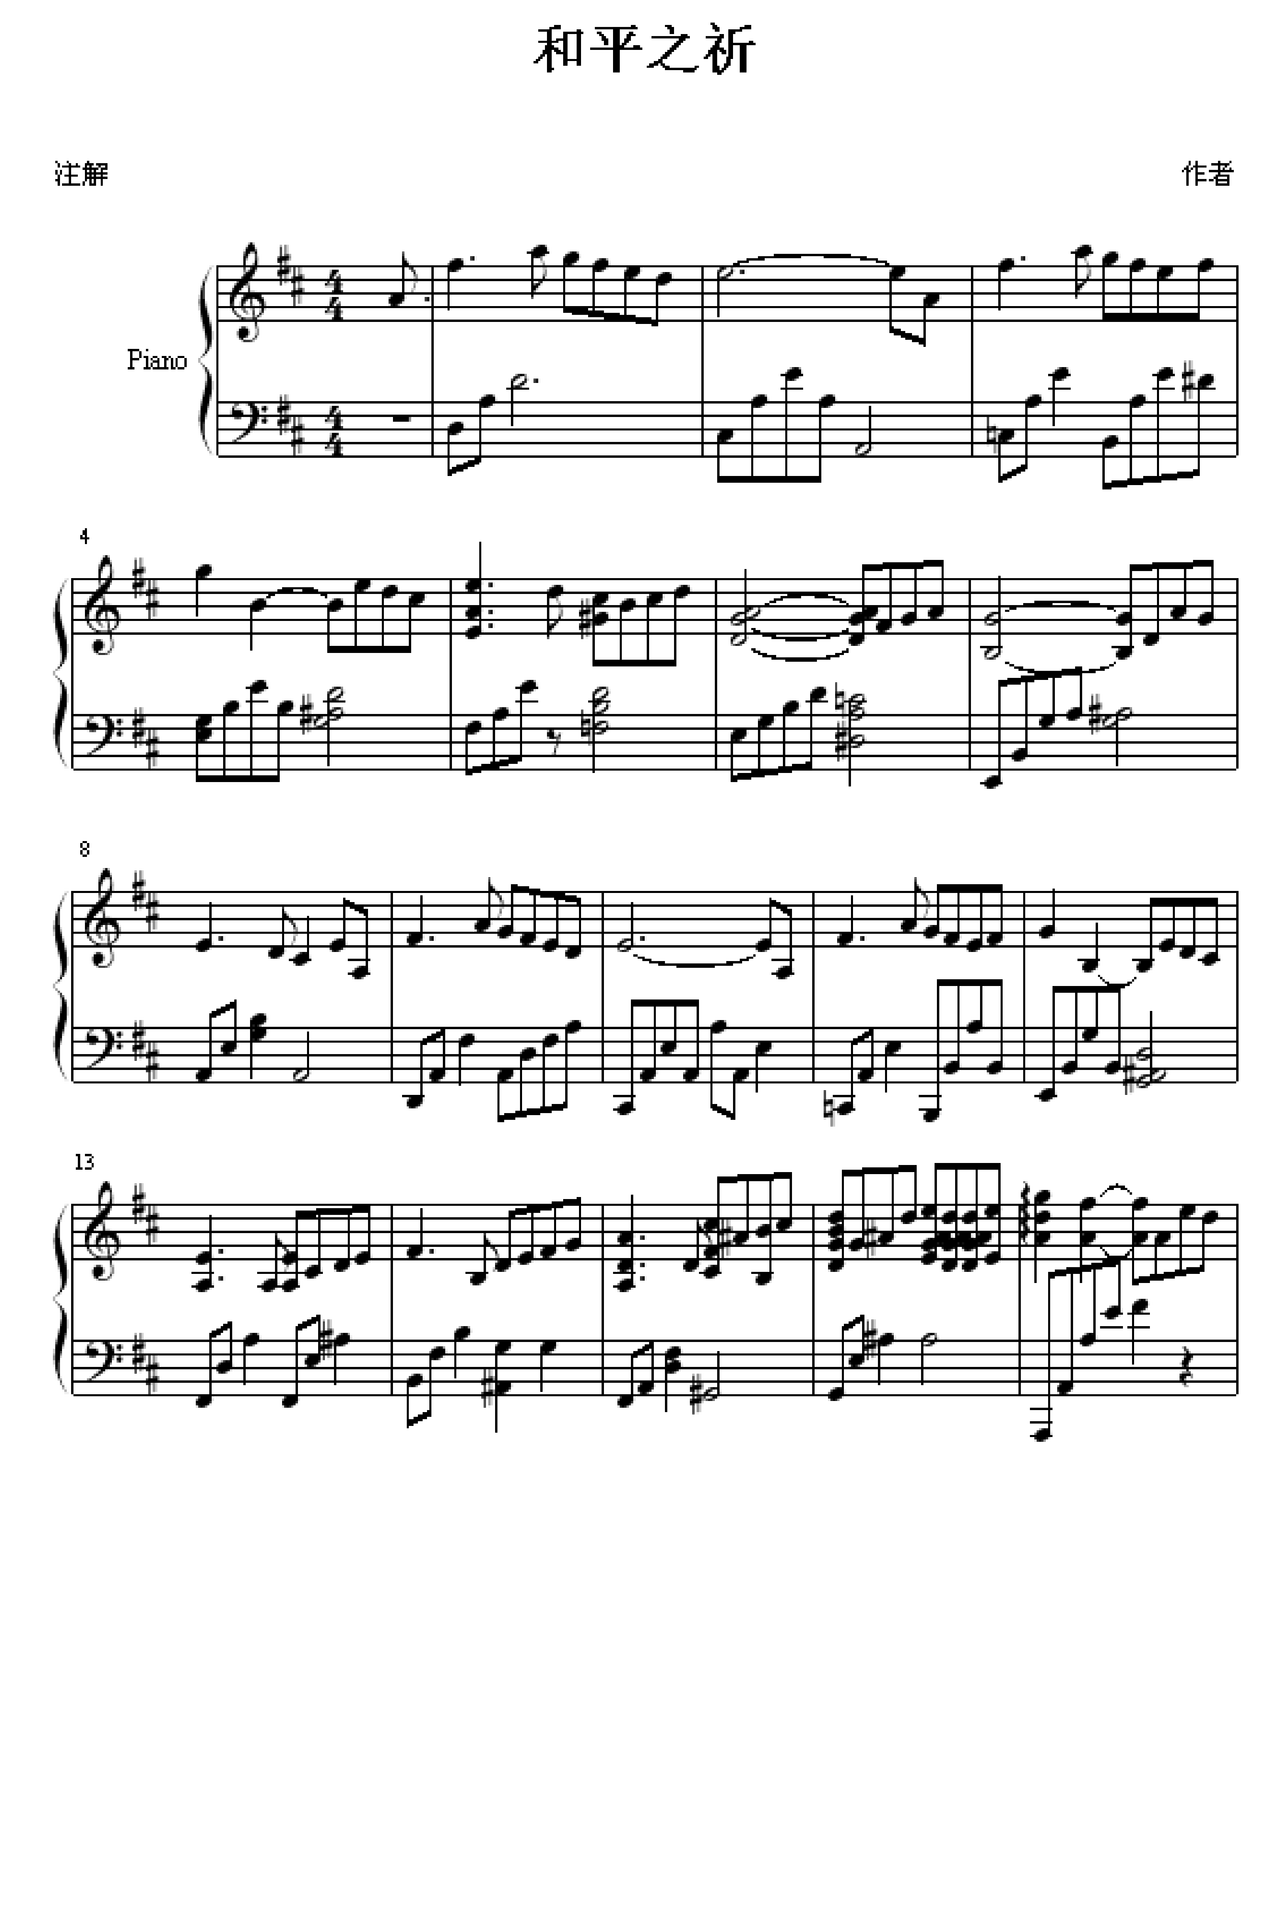 和平之祈
注解
作者
4
4
Piano
4
4
4
8
13